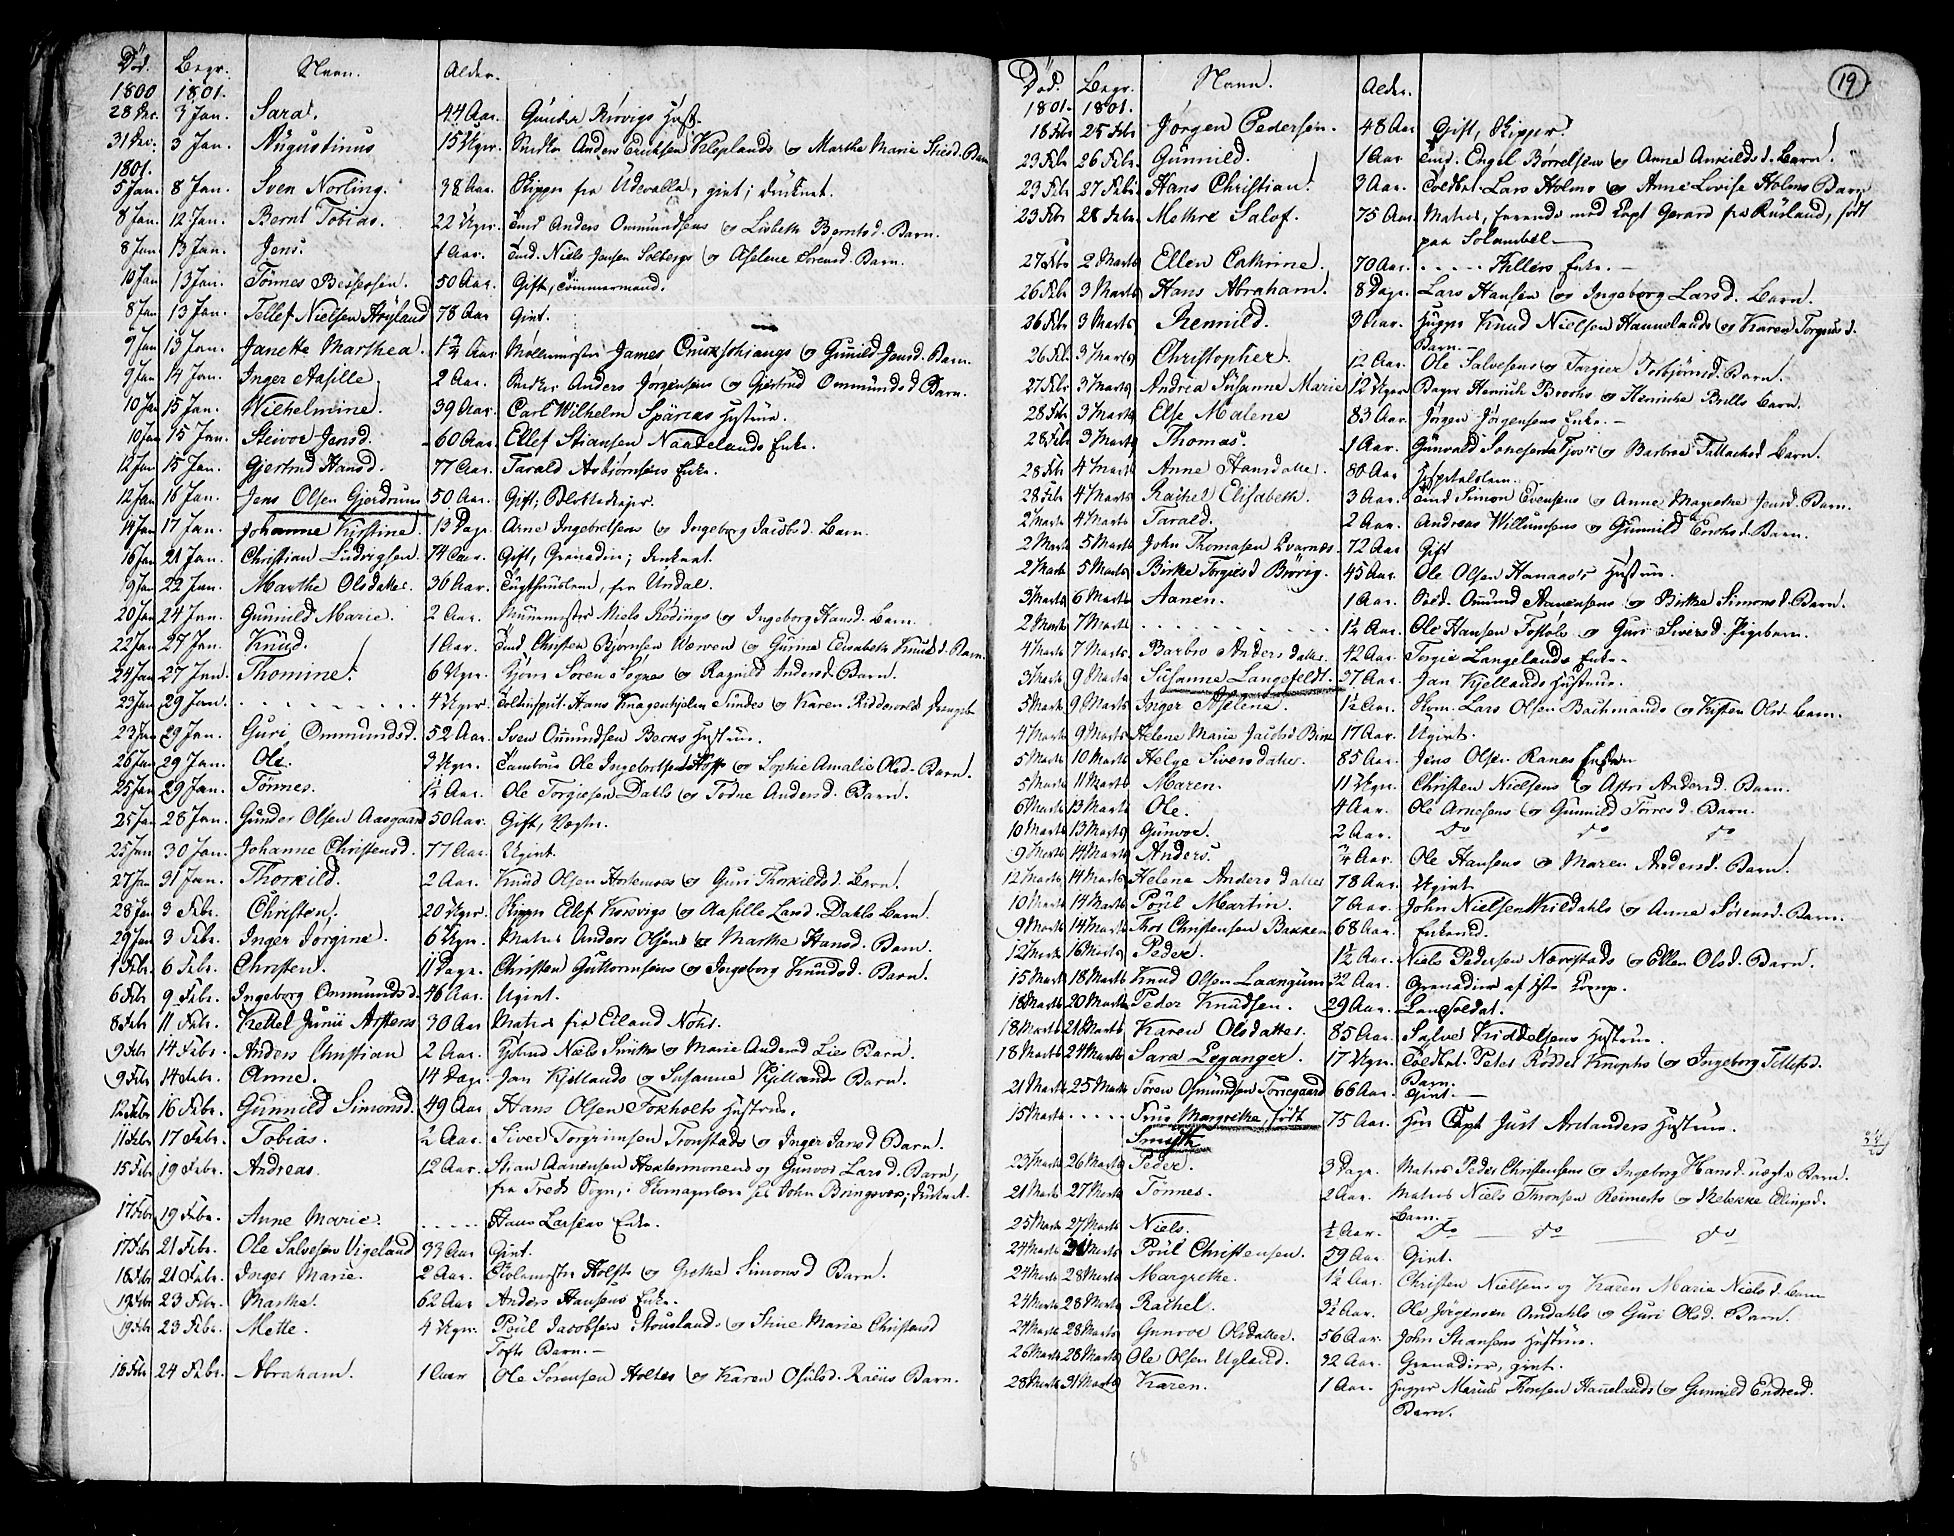 Død. Begr. Navn. Alder.
1800 1801.
28 Dec. 3 Jan. Sara. 44 Aar. Gunder Kirvigs Hust.
31 Dec. 3 Jan. Augustinus 15 Uger. Anders Ericksen Kleplands og Marthe Marie Barn
1801.
5 Jan. 8 Jan. Sven Norling. 38 Aar. Skipper fra Udevalla, gift; druknet.
8 Jan. 12 Jan. Bernt Tobias. 22 Uger. Tmd Anders Ommundsens og Lisbeth Berntsd. Barn.
8 Jan 13 Jan. Jens. 1 Aar. Tmd. Niels Jensen Solbergs og Aselene Sørensd. Barn.
10 Jan 13 Jan. Tønnes Bessesen. 50 Aar. Gift, Tømmermand.
8 Jan 13 Jan. Tellef Nielsen Høyland 78 Aar Gift.
9 Jan 13 Jan. Janette Marthea. 1 3/4 Aar Møllemester James og Gunild Jensd. Barn.
9 Jan 14 Jan. Inger Aasille. 2 Aar. Anders Jørgensens og Gjertrud Ommundsd. Barn.
10 Jan 15 Jan. Wilhelmine. 39 Aar. Carl Wilhelm Hustrue.
10 Jan 15 Jan. Steivor Jensd. 60 Aar. Ellef Stiansen Naadelands Enke.
12 Jan 15 Jan. Gjertrud Hansd. 77 Aar. Tarald Asbjørnsens Enke.
12 Jan 16 Jan. Jens Olsen Gjerdrum 50 Aar. Gift,
14 Jan 17 Jan. Johanne Kirstine. 13 Dage. Arne Ingebretsens og Ingeborg Jacobsd. Barn.
16 Jan 21 Jan. Christian Ludvigsen 74 Aar. Gift, Grenadier; druknet.
9 Jan 22 Jan. Marthe Olsdatter. 36 Aar. Tugthuuslem, fra Undal.
20 Jan 24 Jan. Gunild Marie. 2 Aar. Muurmester Niels Rodings og Ingeborg Hansd. Barn.
22 Jan 27 Jan. Knud. 1 Aar. Tmd. Christen Bjørnsen Værven og Gunna Elisabeth Knudsd. Barn.
24 Jan 27 Jan. Thomine. 6 Uger. Søren Søgnes og Ragnild Andersd. Barn.
23 Jan 29 Jan. - - - - - 4 Uger. Hans Knagenhjelm og Karen Reddervold
23 Jan 29 Jan. Guri Ommundsd. 52 Aar. Sven Omundsen Becks Hustrue.
26 Jan 29 Jan. Ole. 3 Uger. Tambour Ole Ingebretsen og Sophie Amalie Olsd. Barn.
25 Jan 29 Jan. Tønnes. 1½ Aar. Ole Torgiesen Dahls og Todne Andersd. Barn.
25 Jan 28 Jan. Gunder Olsen Aasgaard 50 Aar. Gift, Vægter.
25 Jan 30 Jan. Johanne Christensd. 77 Aar. Ugift.
27 Jan 31 Jan. Thorkild. 2 Aar. Knud Olsen og Guri Thorkildsd. Barn.
28 Jan 3 Febr. Christen. 20 Uger. Skipper Ellef Korsvigs og Aasille Larsd. Dahls Barn.
29 Jan 3 Febr. Inger Jørgine. 6 Uger. Matros Anders Olsens og Marthe Hansd. Barn.
1 Febr. 6 Febr. Christen. 11 Dage. Christen Guttormsens og Ingeborg Knudsd. Barn.
6 Febr 9 Febr. Ingeborg Ommundsd. 46 Aar. Ugift.
8 Febr 11 Febr. Kettel 30 Aar Matros fra Eiland
9 Febr 14 Febr. Anders Christian 2 Aar. Niels og Marie Andersd Lies Barn.
9 Febr. 14 Febr. Anne. 14 Dage. Jan Kjellands og Susanne Kjellands Barn.
12 Febr 16 Febr. Gunnild Simonsd. 49 Aar Hans Olsen Foxholts Hustrue.
11 Febr 17 Febr. Tobias. 2 Aar. Siver Torgrimsen Tronstads og Inger Jansd Barn.
15 Febr 19 Febr. Andreas. 12 Aar. Stian Aanensen og Gunvor Larsd. Barn,
fra Sogn, i hos John Bringsvor; druknet.
17 Febr 19 Febr. Anne Marie. - - - - - Hans Larsens Enke.
17 Febr 21 Febr. Ole Salvesen Vigeland 33 Aar Gift.
18 Febr 21 Febr. Inger Marie. 2 Aar. Holsts og Grethe Simonsd Barn.
19 Febr 23 Febr. Marthe. 62 Aar Anders Hansens Enke.
19 Febr 23 Febr. Mette. 4 Uger. Poul Jacobsen Stouslands og Stine Marie Christensd
Tofte Barn.
18 Febr 24 Febr. Abraham. 1 Aar Ole Sørensen Holtes og Karen Osulsd. Barn.
19
Død. Begr. Navn. Alder.
1801. 1801.
18 Febr 25 Febr Jørgen Pedersen. 48 Aar Gift, Skipper.
23 Febr. 26 Febr. Gunnild. 1 Aar Tmd. Engel Børrelsens og Anne Ankildsd. Barn.
23 Febr 27 Febr. Hans Christian. 3 Aar. Toldbet. Lars Holms og Anne Lovise Holms Barn
23 Febr 28 Febr. Mekre Salof. 75 Aar. Matros, farende med Capt Gerard fra Rusland, født
paa Solambal
27 Febr 2 Marts Ellen Cathrine. 70 Aar. - - - - Killers Enke.
26 Febr 3 Marts Hans Abraham. 8 Dage. Lars Hansen og Ingeborg Larsd. Barn.
26 Febr 3 Marts Rennild. 3 Aar. Knud Nielsen Hannelands og Karen Torgiusd.
Barn.
26 Febr 3 Marts Christopher. 12 Aar. Ole Salvesens og Torgier Torbjørnsd. Barn.
27 Febr 3 Marts Andrea Susanne Marie 12 Uger Bager Henrich Brochs og Henricke Brills Barn.
28 Febr. 3 Marts Else Malene 83 Aar. Jørgen Jørgensens Enke.
28 Febr 3 Marts Thomas. 1 Aar. Gunvald Sonesen og Barbroe Tallachsd. Barn.
28 Febr 4 Marts Anne Hansdatter. 80 Aar Hospitalslem.
28 Febr 4 Marts Rachel Elisabeth. 3 Aar. Tmd Simon Evensens og Anne Magrethe Jensd. Barn.
2 Marts 4 Marts Tarald. 2 Aar. Andreas Willumsens og Gunnild Erichsd. Barn.
2 Marts 5 Marts John Thomasen Qvarnes. 72 Aar Gift
2 Marts 5 Marts Birthe Torgiesd Brørig. 45 Aar. Ole Olsen Hanaas's Hustrue.
3 Marts 6 Marts Aanen. 1 Aar. Sold. Omund Aanensens og Birthe Simonsd. Barn.
2 Marts 7 Marts - - - - - - 1½ Aar. Ole Hansen Tostols og Guri Siversd. Pigebarn.
4 Marts 7 Marts Barbro Andersdatter. 42 Aar. Torgie Langelands Enke.
3 Marts 9 Marts Susanne Langefeldt. 37 Aar. Jan Kjellands Hustrue.
5 Marts 9 Marts Inger Aselene. 1½ Aar. Lars Olsen Bachmands og Kirsten Olsd. Barn.
4 Marts 9 Marts Helene Marie Jacobsd Birk 17 Aar. Ugift.
5 Marts 10 Marts Helge Siversdatter. 85 Aar. Jens Olsen Ranes Enke
5 Marts 11 Marts Maren. 11 Uger. Christen Nielsens og Astri Andersd. Barn.
6 Marts 13 Marts Ole. 4 Aar. Ole Arnesens og Gunnild Torresd. Barn.
10 Marts 13 Marts Gunvor. 2 Aar. do do do
9 Marts 14 Marts Anders. ¾ Aar. Ole Hansens og Maren Andersd. Barn.
12 Marts 14 Marts Helena Andersdatter 78 Aar. Ugift.
10 Marts 14 Marts Poul Martin. 7 Aar. John Nielsen Kildahls og Anne Sørensd. Barn.
9 Marts 14 Marts Thor Christensen Bakken 68 Aar. Enkemd.
12 Marts 16 Marts Peder. 1½ Aar. Niels Pedersen Nærstads og Ellen Olsd. Barn.
15 Marts 18 Marts Knud Olsen Laangum 32 Aar. Grenadier af
18 Marts 20 Marts Peder Knudsen. 29 Aar. Landsoldat.
18 Marts 21 Marts Karen Olsdatter. 85 Aar. Salve Kiddelsens Hustrue.
18 Marts 24 Marts Sara Leganger. 17 Uger. Toldbet. Peter Rødder Knophs og Ingeborg Tellefsd.
Barn.
21 Marts 25 Marts Søren Osmundsen Torregaard 66 Aar. Gift.
15 Marts - - - - Frue Margrethe, født 75 Aar. Hr. Capt Just Arelanders Hustrue.
Smith
23 Marts 26 Marts Peder. 3 Dage. Matros Peder Christensens og Ingeborg Hansd. Barn
21 Marts 27 Marts Tønnes. 2 Aar. Matros Niels Thorsen Reimerts og Rebekke Ellingsd.
Barn.
25 Marts 27 Marts Niels. ½ Aar. do do do
24 Marts Marts Poul Christensen. 59 Aar. Gift.
24 Marts 28 Marts Margrethe. 1½ Aar. Christen Nielsens og Karen Marie Nielsd. Barn
24 Marts 28 Marts Rachel. 3½ Aar. Ole Jørgensen Omdahls og Guri Olsd. Barn.
24 Marts 28 Marts Gunvor Olsdatter. 56 Aar. John Stiansens Hustrue.
26 Marts 28 Marts Ole Olsen Ugland. 32 Aar. Grenadier, gift.
28 Marts 31 Marts Karen. 1 Aar. Marius Thorsen Hannelands og Gunnild Endresd.
Barn.